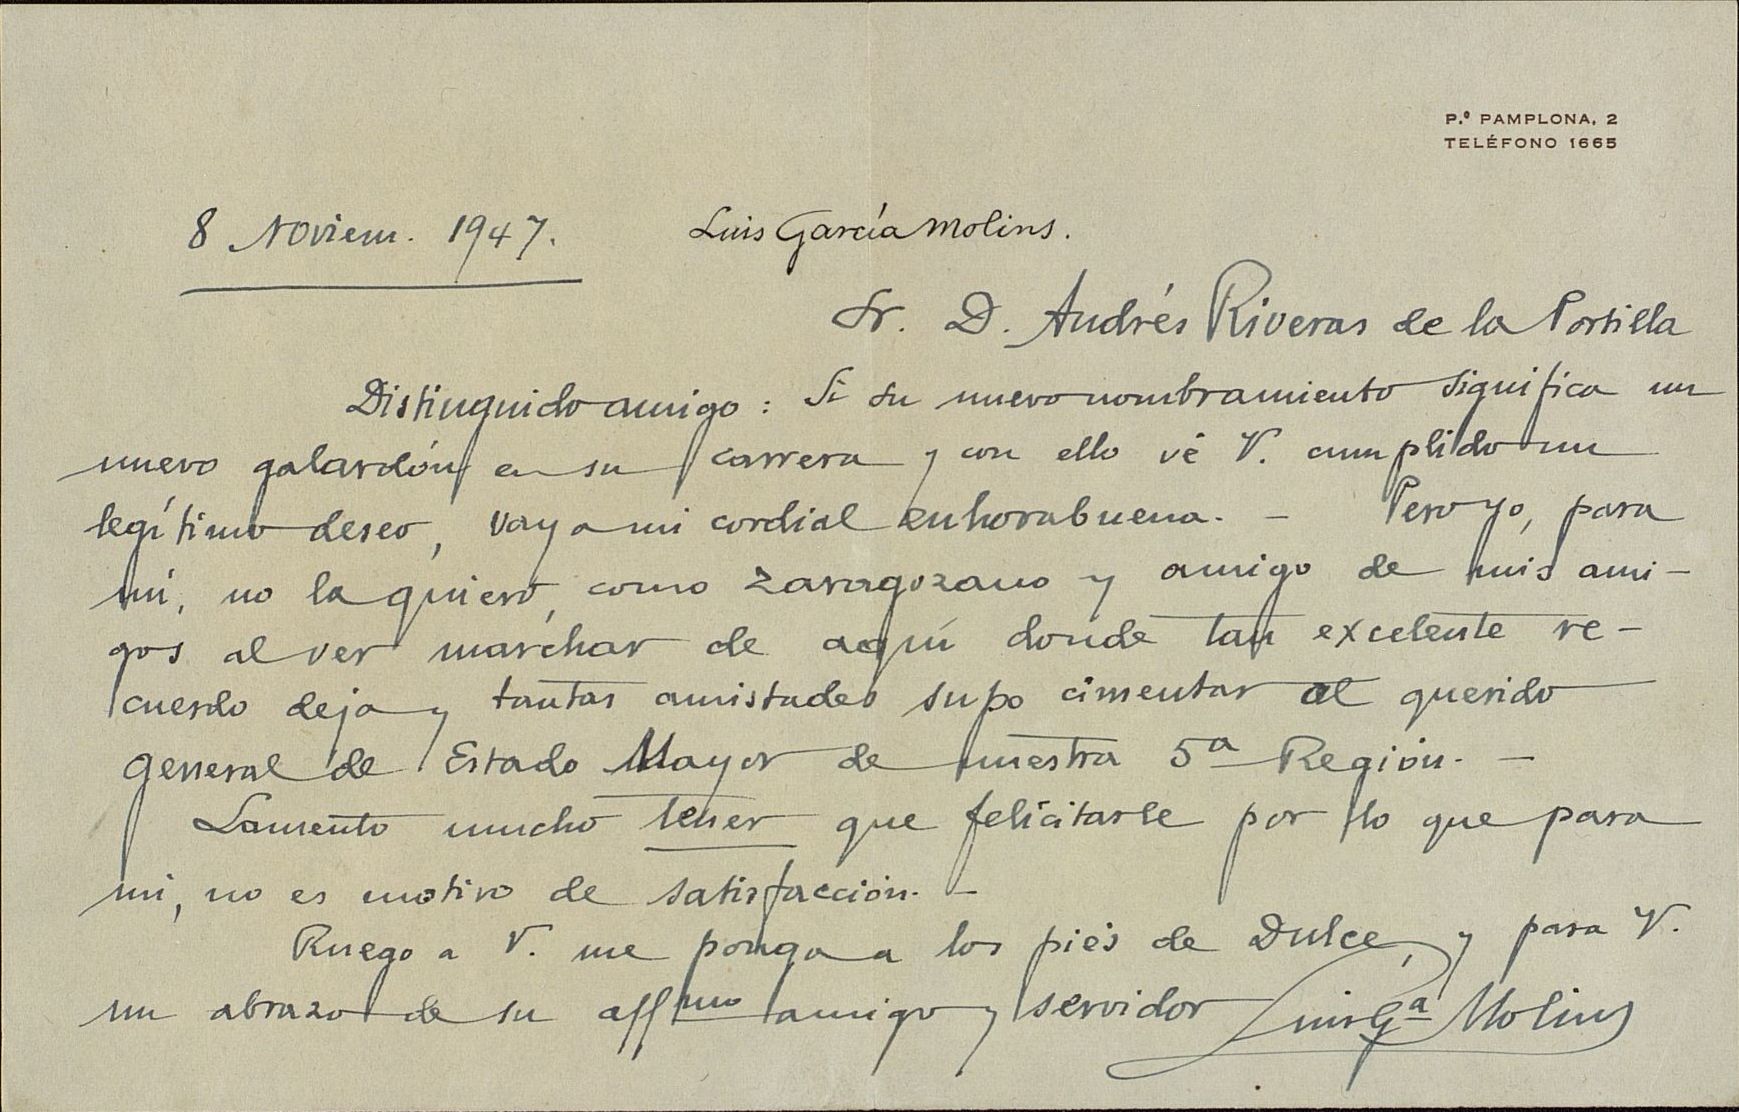 P.º PAMPLONA, 2
TELÉFONO 1665
8 Noviem. 1947.
Luis García Molins.
Sr. D. Andrés Riveras de la Portilla
Distinguido amigo: Si su nuevo nombramiento significa un
nuevo galardón en su carrera y con ello vé V. cumplido un
legítimo deseo, vaya mi cordial enhorabuena. - Pero yo, para
mí, no la quiero, como zaragozano y amigo de mis ami-
gos al ver marchar de aquí donde tan excelente re-
cuerdo deja y tantas amistades supo cimentar al querido
General de Estado Mayor de nuestra 5ª Región. -
Lamento mucho tener que felicitarle por lo que para
mi, no es motivo de satisfacción. -
Ruego a V. me ponga a los piés de Dulce, y para V.
un abrazo de su affmo amigo y servidor Luis Gª Molins